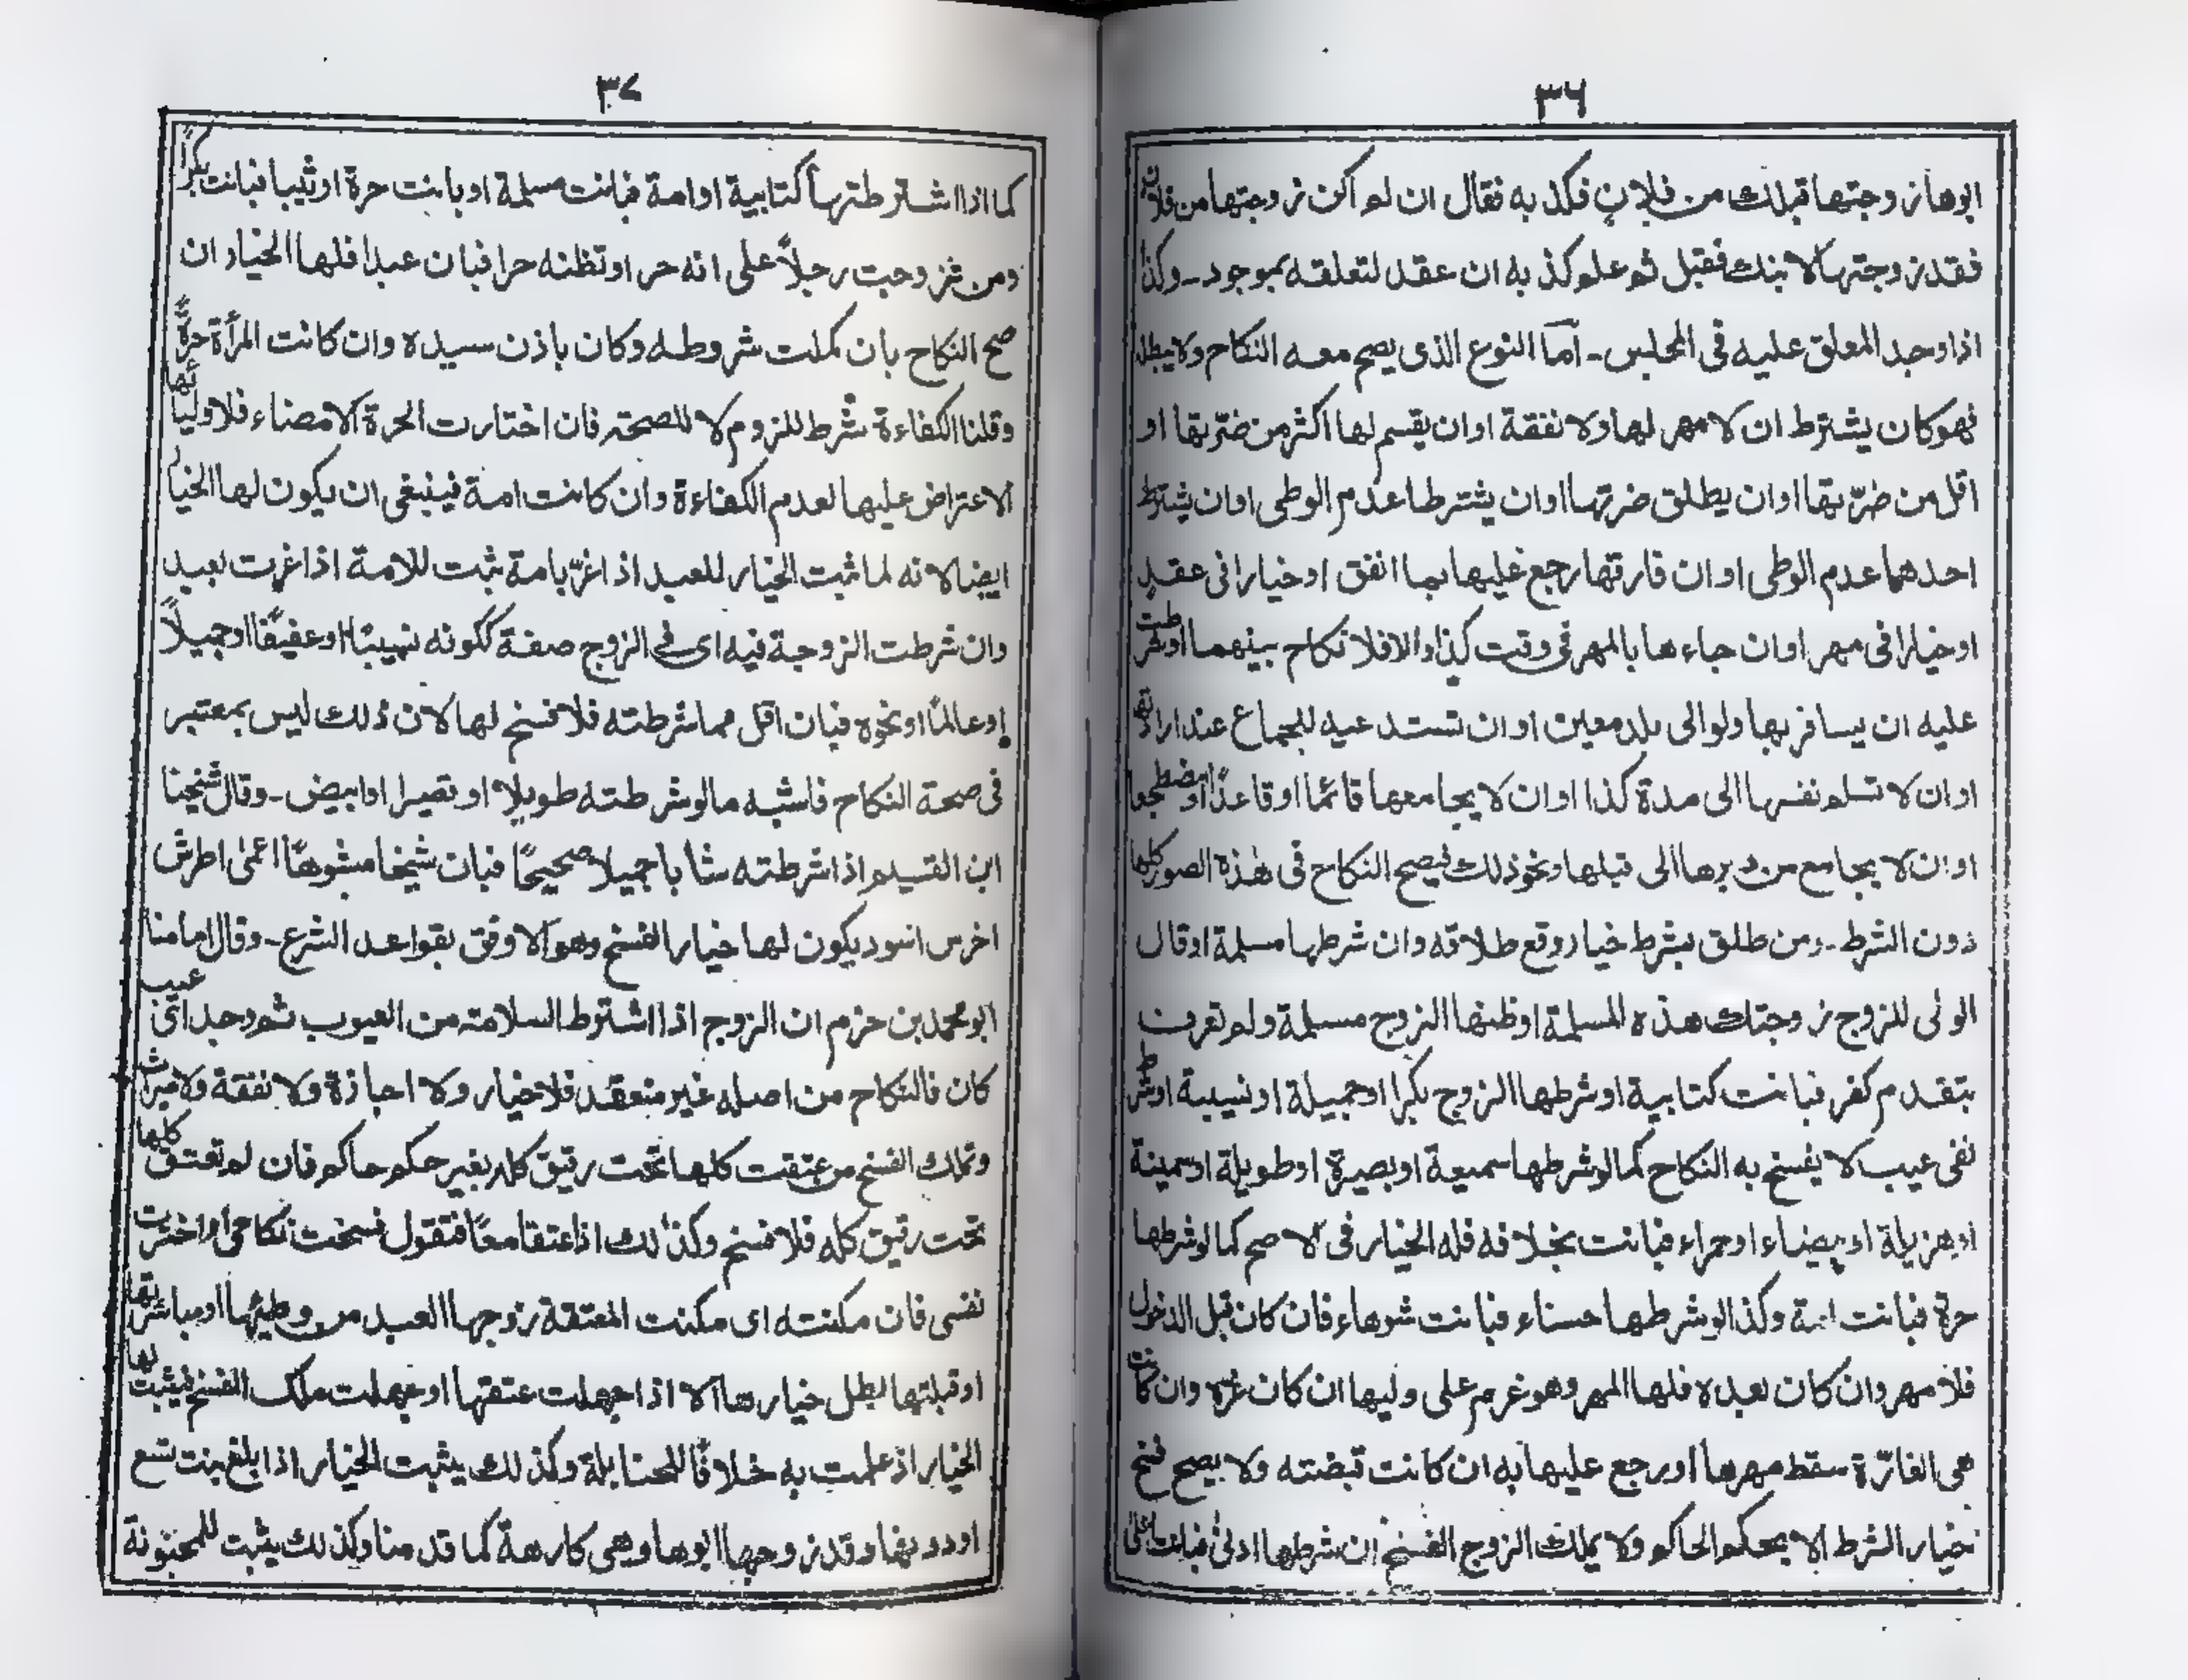 ٣٦
ابوها زوجتها قبلك من فلان فكذبه فقال ان لم اكن زوجتها من فلان
فقد زوجتها لابنك فقبل ثم علم كذبه ان عقد لتعلقه بموجود۔ وكذا
اذا وجد المعلق عليه فى المجلس۔ اما النوع الذى يصح معه النكاح ولا يبطله
فهو كان يشترط ان لا مهر لها ولا نفقة او ان يقسم لها اكثر من ضرّتها او
اقل من ضرّتها او ان يطلق ضرتها او ان يشترطا عدم الوطى او ان يشترط
احدهما عدم الوطى او ان فارقها رجع عليها بما انفق او خيارا فى عقد
او خيارا فى مهر او ان جاءها بالمهر فى وقت كذا والا فلا نكاح بينهما او شرطت
عليه ان يسافر بها ولو الى بلد معين او ان تستدعيه للجماع عند ارادتها
او ان لا تسلم نفسها الى مدة كذا او ان لا يجامعها قائما او قاعدًا او مضطجعا
او ان لا يجامع من دبرها الى قبلها ونحو ذلك فيصح النكاح فى هذه الصور كلها
دون الشرط۔ ومن طلق بشرط خيار وقع طلاقه وان شرطها مسلمة او قال
الولى للزوج زوجتك هذه المسلمة او ظنها الزوج مسلمة ولم تعرف
بتقدم كفر فبانت كتابية او شرطها الزوج بكرا او جميلة او نسيبة او شرط
نفى عيب لا يفسخ به النكاح كما لو شرطها سميعة او بصيرة او طويلة او سمينة
او هزيلة او بيضاء او حمراء فبانت بخلافه فله الخيار فى الاصح كما لو شرطها
حرة فبانت امة وكذا لو شرطها حسناء فبانت شوهاء فان كان قبل الدخول
فلا مهر وان كان بعده فلها المهر وهو غرم على وليها ان كان غره وان كانت
هى الغارّة سقط مهرها او رجع عليها به ان كانت قبضته ولا يصح فسخ
بخيار الشرط الا بحكم الحاكم ولا يملك الزوج الفسخ ان شرطها ادنى فبانت اعلى
٣٧
كما اذا اشترطتها كتابية او امة فبانت مسلمة او بانت حرة او ثيبا فبانت بكرًا
ومن تزوجت رجلاً على انه حر او تظنه حرا فبان عبدا فلها الخيار ان
صح النكاح بان كملت شروطه وكان باذن سيده وان كانت المرأة حرةً
وقلنا الكفاءة شرط للزوم لا للصحة فان اختارت الحرة الامضاء فلاوليائها
الاعتراض عليها لعدم الكفاءة وان كانت امة فينبغى ان يكون لها الخيار
ايضا لانه لما ثبت الخيار للعبد اذا غرّ بامة ثبت للامة اذا غرت بعبد
وان شرطت الزوجة فيه اى فى الزوج صفة ككونه نسيبًا او عفيفًا او جميلاً
او عالمًا او نحوه فبان اقل مما شرطته فلا فسخ لها لان ذلك ليس بمعتبر
فى صحة النكاح فاشبه ما لو شرطته طويلا او قصيرا او ابيض۔ وقال شيخنا
ابن القسيم اذا شرطته شابا جميلا صحيحًا فبان شيخا مشوهًا اعمى اطرش
اخرس اسود يكون لها خيار الفسخ وهو الاوفق بقواعد الشرع۔ وقال امامنا
ابو محمد بن حزم ان الزوج اذا اشترط السلامة من العيوب ثم وجد اى عيب
كان فالنكاح من اصله غير منعقد فلا خيار ولا اجازة ولا نفقة ولا ميراث
وتملك الفسخ من عتقت كلها تحت رقيق كله بغير حكم حاكم فان لم تعتق كلها
تحت رقيق كله فلا فسخ وكذلك اذا عتقا معًا فتقول فسخت نكاحى او اخترت
نفسى فان مكنته اى مكنت المعتقة زوجها العبد من وطيها او مباشرتها
او قبلتها بطل خيارها الا اذا جهلت عتقها او جهلت ملك الفسخ فيثبت لها
الخيار اذ علمت به خلافًا للحنابلة وكذلك يثبت الخيار اذا بلغ بنت تسع
او دونها وقد زوجها ابوها وهى كارهة كما قدمنا وكذلك يثبت للمجنونة